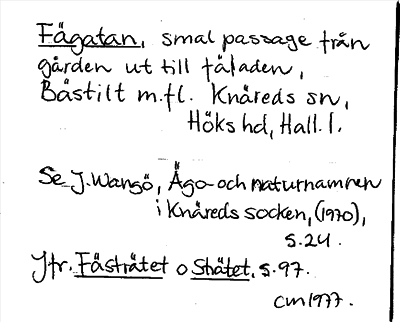 Fägatan, smal passage från
gården ut till fäladen,
Båstilt m.fl. Knäreds sn,
Höks hd, Hall. l.
Se J. Wangö, Ägo- och naturnamnen
i Knäreds socken, (1970),
s. 24.
Jfr. Fästrätet o Strätet, s. 97.
CM 1977.